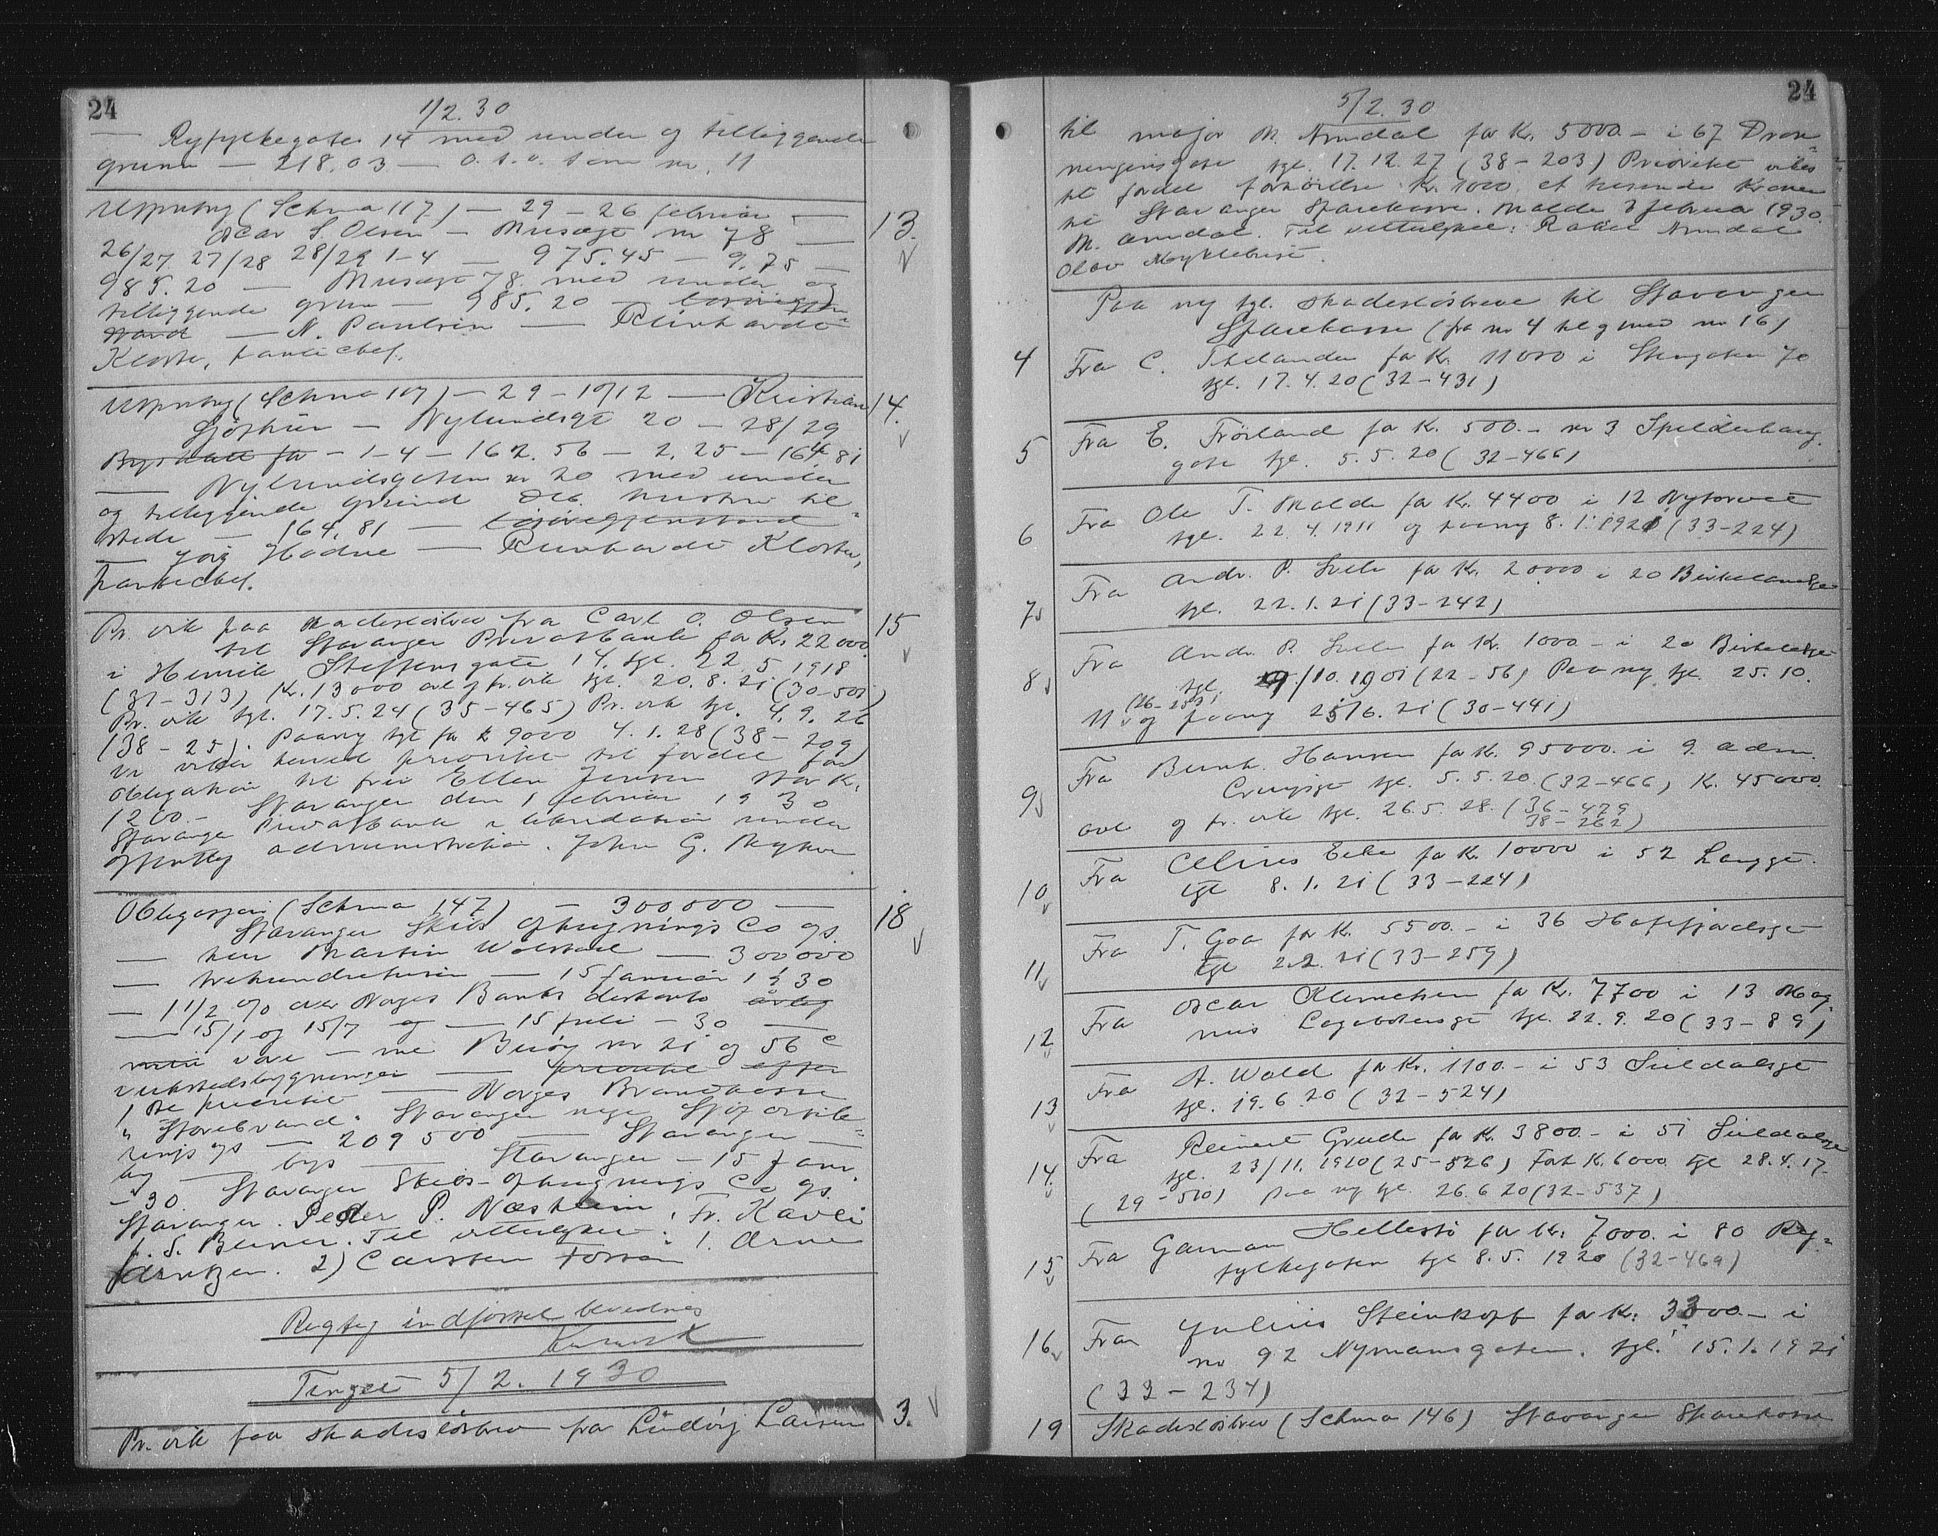 24
1/2.30
— Ryfylkegaten 14 med under og tilliggende
grunn — 218.03 — o.s.v. som nr. 11
Utpantng (Schma 117) — 29 – 26 februar —
13.
Oscar S. Olsen — Musægt nr 78 —
26/27 27/28 28/29 1-4 — 975.45 — 9.75 —
985.20 — Musægt 78 med under og
tilliggende grunn — 985.20 —
— N. Paulsen — Reinhardt
Kloster, pantechef.
Utpantng (Schma 117) — 29 – 10/12 — Kristian
14.
Sjøthun — Nylundsgt 20 — 28/29
Byskatt for – 1-4 – 162.56 — 2.25 – 164,81
— Nylundsgaten nr 20 med under
og tilliggende grund Ole hustru til-
stede — 164,81 — løsøregjenstand
— Hadne — Reinhardt Kloster,
pantechef.
Pr. vik paa skadesløsbrev fra Carl O. Olsen
15
til Stavanger Privatbank for Kr. 22000
i Henrik Steffensgate 14. tgl. 22.5 1918
(31-313) Kr. 13000 avl og pr. vik tgl. 20.8.21 (30-501)
Pr. vik tgl. 17.5.24 (35-465) Pr. vik tgl. 4.9.26
(38-25). Paany tgl for k 9000 4.1.28 (38-209)
vi viker herved prioritet til fordel for
obligation til fru Ellen Jensen stor K.
1200.– Stavanger den 1 februar 1930
Stavanger Privatbank i likvidation under
offentlig administration. John G.
Obligasjon (Schma 147) — 300000 —
18
Stavanger Skibs Ophugnings Co as.
— herr Martin Wolstad — 300000
— trehundretusen — 15 januar 1930
— 1 1/2 % over Norges Banks diskonto årlig
— 15/1 og 15/7 og — 15 juli – 30 —
min vore — me Buøy nr 21 og 56 c
verkstedsbygninger — prioritet efter
1ste prioritet — Norges Brandkasse
" Storebrand. Stavanger nye Sjøforsik-
rings as — 209500 — Stavanger —
by — bys — Stavanger – 15 jan.
– 30. Stavanger Skibs-Ophugnings Co as.
Stavanger. Peder P. Næsheim, Fr. Kavli
Til vitterlighet: 1. Arne
2) Carsten
Rigtig indførsel bevidnes
Tinget 5/2. 1930
Pr. vik paa skadesløsbrev fra Ludvig Larsen
3.
24
5/2.30
til major M. Arndal for Kr. 5000.– i 67 Dron-
ningensgate tgl. 17.12.27 (38-203) Prioritet vikes
til fordel forhøielse Kr. 1000 et tusende Kroner
til Stavanger Sparekasse. Molde 3 februar 1930.
M. Arndal. Til vitterlighet: Arndal
Olav Myklebust.
Paa ny tgl. skadesløsbreve til Stavanger
Sparekasse (fra nr 4 til og med nr 16)
4 Fra C. Thelander for Kr. 11000 i Stengaten 70
tgl. 17.4.20 (32-431)
5 Fra E. Frøiland for K. 500.– nr 3 Spilderhaug-
gate tgl. 5.5.20 (32-466)
6 Fra Ole T. Molde for Kr. 4400 i 12 Nytorvet
tgl. 22.4.1911 og paany 8.1.1921 (33-224)
7 Fra Andr. P. Svele for Kr. 20000 i 20 Birkelandsgt
tgl. 22.1.21 (33-242)
8 Fra Andr. P. Svele for Kr. 1000.– i 20 Birkelandsgt
tgl. 9/10.1901 (22-56) Paa ny tgl. 25.10.
11 (26-253) og paany 25/6.21 (30-441)
9 Fra Bernh. Hansen for Kr. 95000. i 9. Adm.
Cruysgt tgl. 5.5.20 (32-466) Kr. 45000.
avl og pr. vik tgl. 26.5.28. (36-479
38-262)
10 Fra Elius Eike for Kr. 10000 i 52 Langgt.
tgl 8.1.21 (33-224)
11 Fra T. Goa for Kr. 5500.– i 36 Hafrsfjordsgt
tgl 2.2.21 (33-259)
12 Fra Oscar Klemetsen for Kr. 7700 i 13 Mag-
nus Lagabøtersgt tgl. 22.9.20 (33-89)
13 Fra A. Wold for Kr. 1100.– i 53 Suldalsgt
tgl. 19.6.20 (32-524)
14. Fra Reinert Grude for Kr. 3800.– i 51 Suldalsgt
tgl. 23/11.1910 (25-526) Forh K. 6000 tgl 28.4.17
(29-510) paa ny tgl. 26.6 20 (32-537)
15 Fra Garman Hellestø for Kr. 7000. i 80 Ry-
fylkegaten tgl 8.5.1920 (32-469)
16 Fra Julius Steinkopf for Kr. 3300.– i
nr 92 Nymansgaten. tgl. 15.1.1921
(33-234)
19 Skadesløsbrev (Schma 146) Stavanger Sparekasse